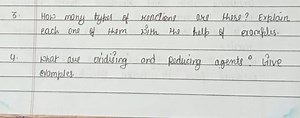 3. How many types of reactions are there? Explain
each one of them with the help of examples.
4. What are oxidising and Reducing agents? Give
examples